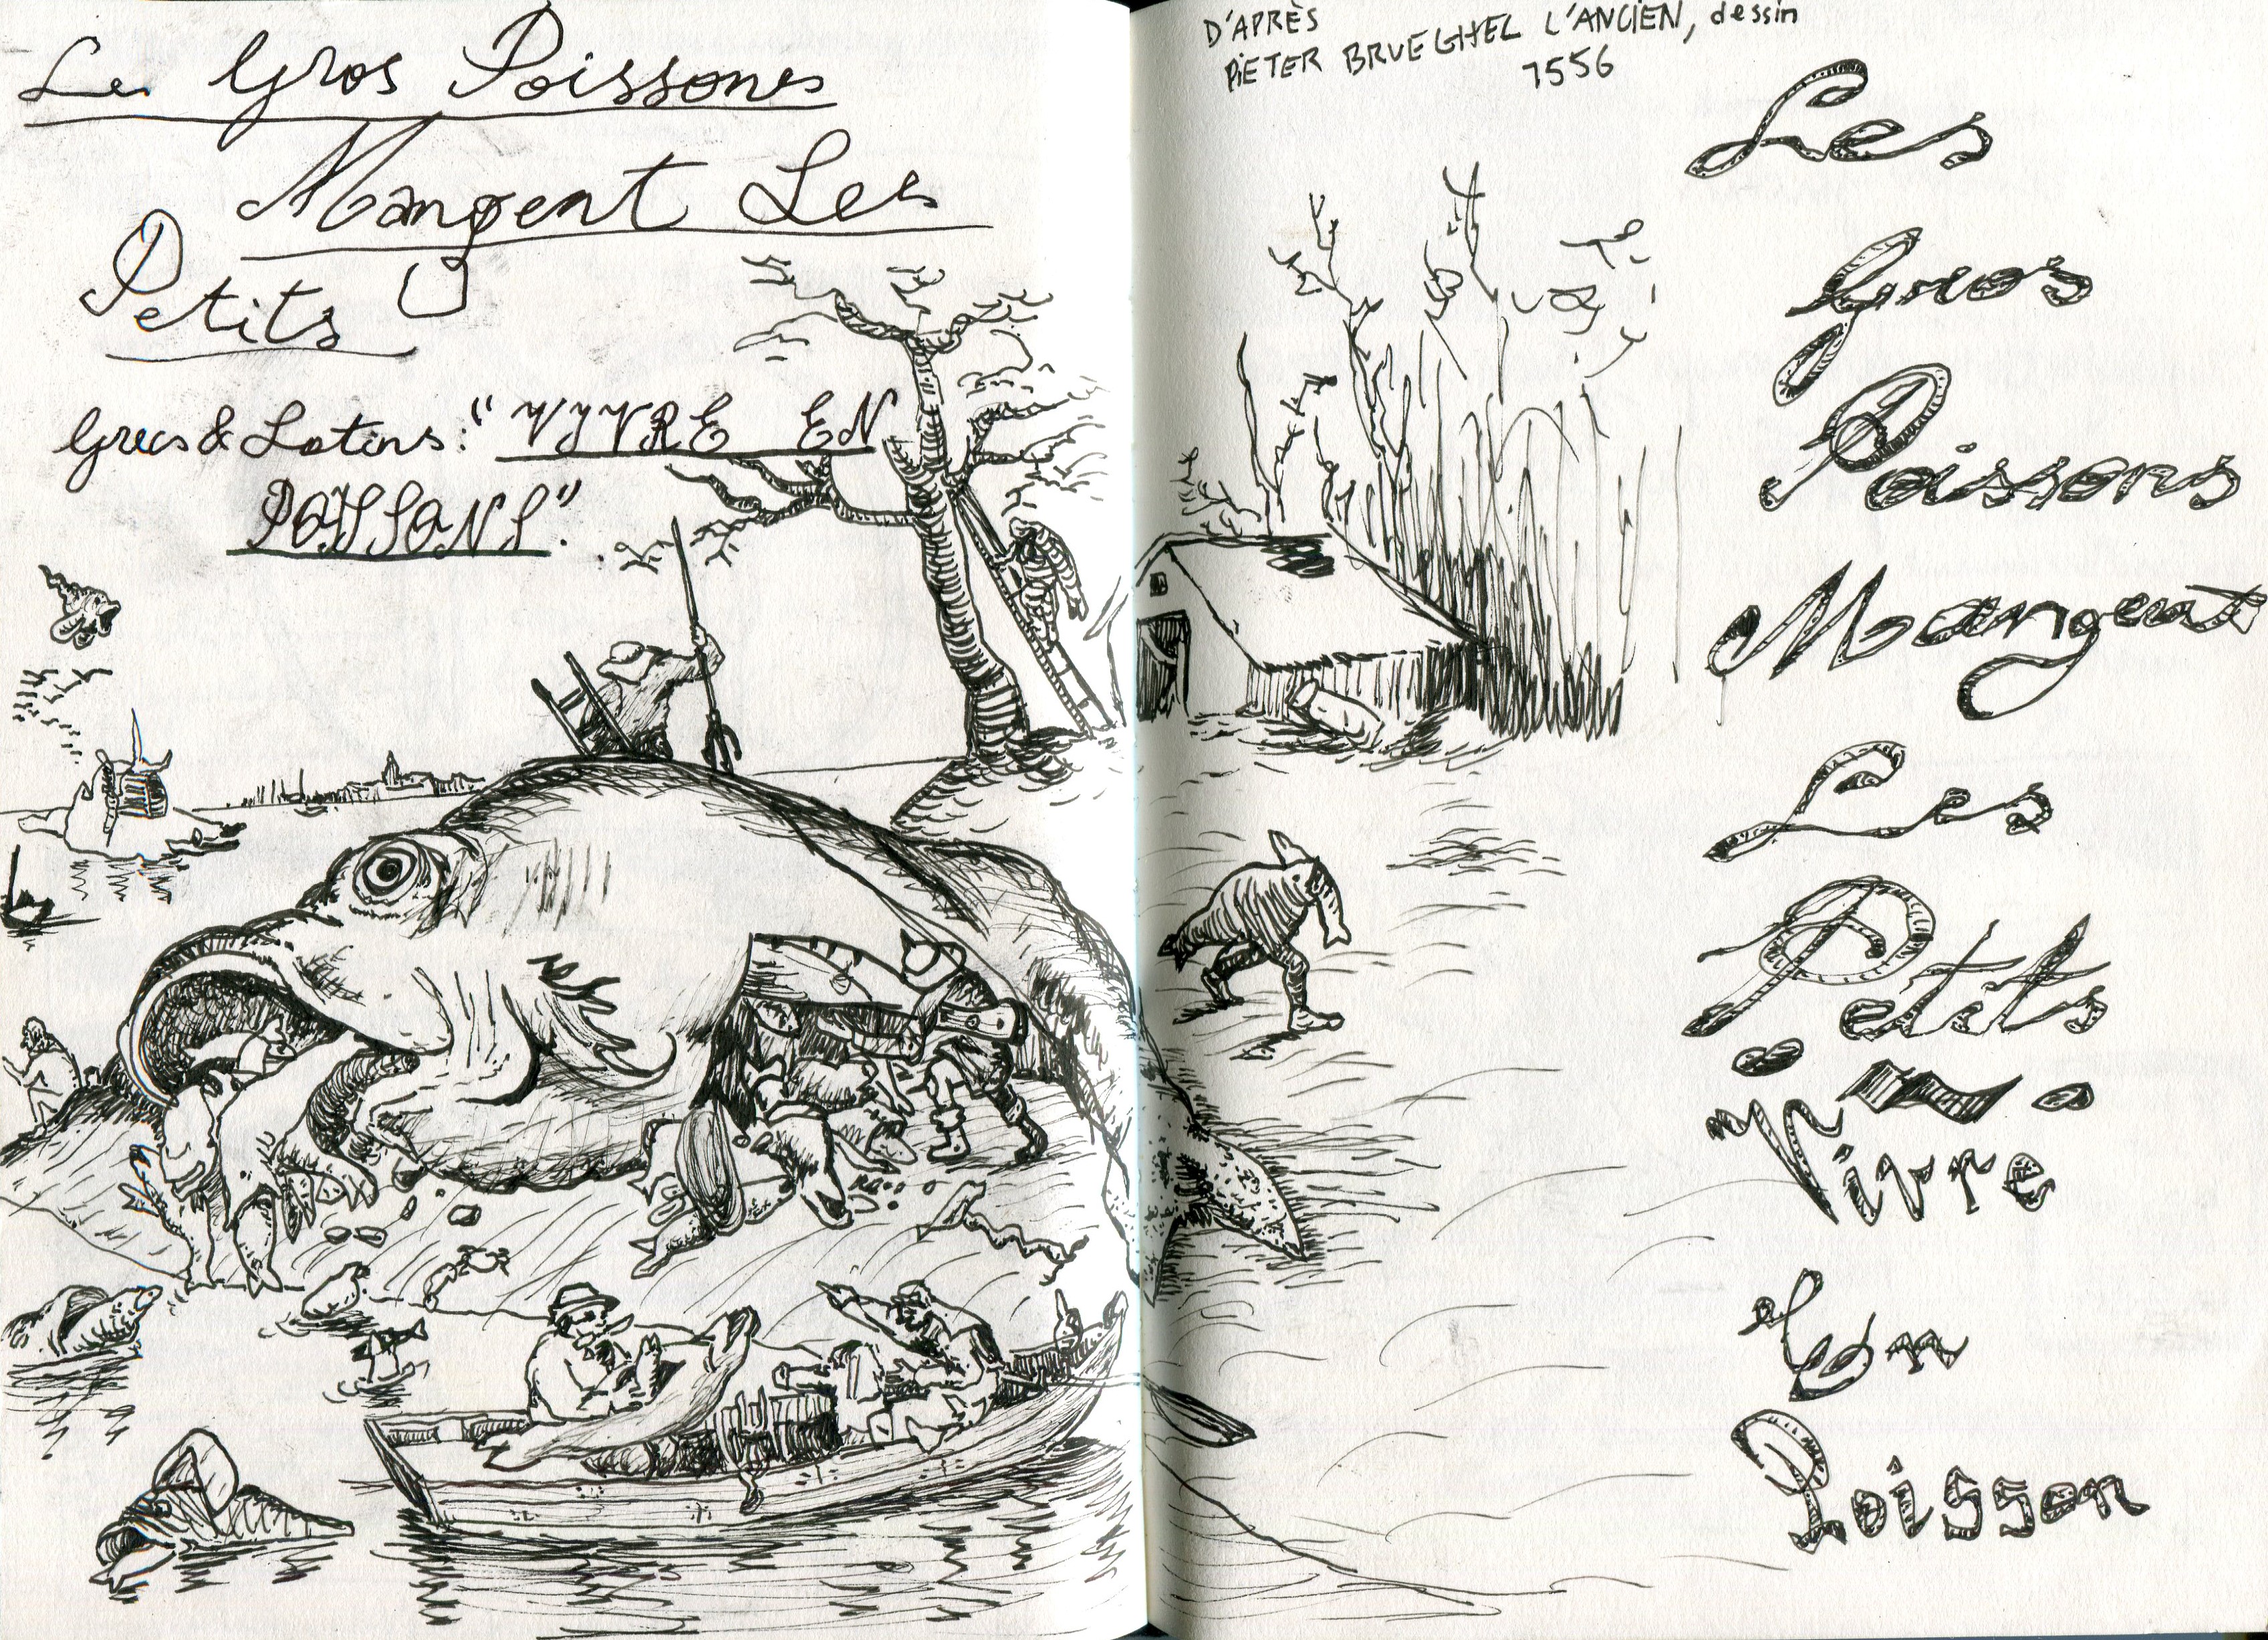 Les Gros Poissons
Mangent Les
Petits
Grecs & Latins : "VIVRE EN
POISSONS".
D'APRÈS
PIETER BRUEGHEL L'ANCIEN, dessin
1556
Les
Gros
Poissons
Mangent
Les
Petits
Vivre
En
Poisson